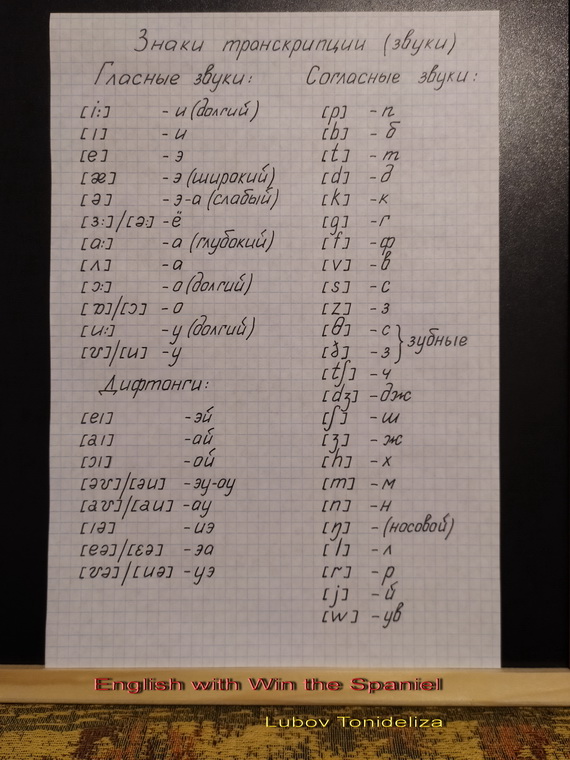 Знаки транскрипции (звуки)
Гласные звуки:
[i:] - и (долгий)
[ı] - и
[e] - э
[æ] - э (широкий)
[ə] - э-а (слабый)
[ɜ:]/[ə:] - ё
[a:] - а (глубокий)
[ʌ] - а
[ɔ:] - о (долгий)
[ɒ]/[ɔ] - о
[u:] - у (долгий)
[ʊ]/[u] - у
Дифтонги:
[eı] - эй
[aı] - ай
[ɔı] - ой
[əʊ]/[əu] - эу-оу
[aʊ]/[au] - ау
[ıə] - иэ
[eə]/[ɛə] - эа
[ʊə]/[uə] - уэ
Согласные звуки:
[p] - п
[b] - б
[t] - т
[d] - д
[k] - к
[g] - г
[f] - ф
[v] - в
[s] - с
[z] - з
[θ] - с } зубные
[ð] - з
[tʃ] - ч
[dʒ] - дж
[ʃ] - ш
[ʒ] - ж
[h] - х
[m] - м
[n] - н
[ŋ] - (носовой)
[l] - л
[r] - р
[j] - й
[w] - ув
English with Win the Spaniel
Lubov Tonideliza